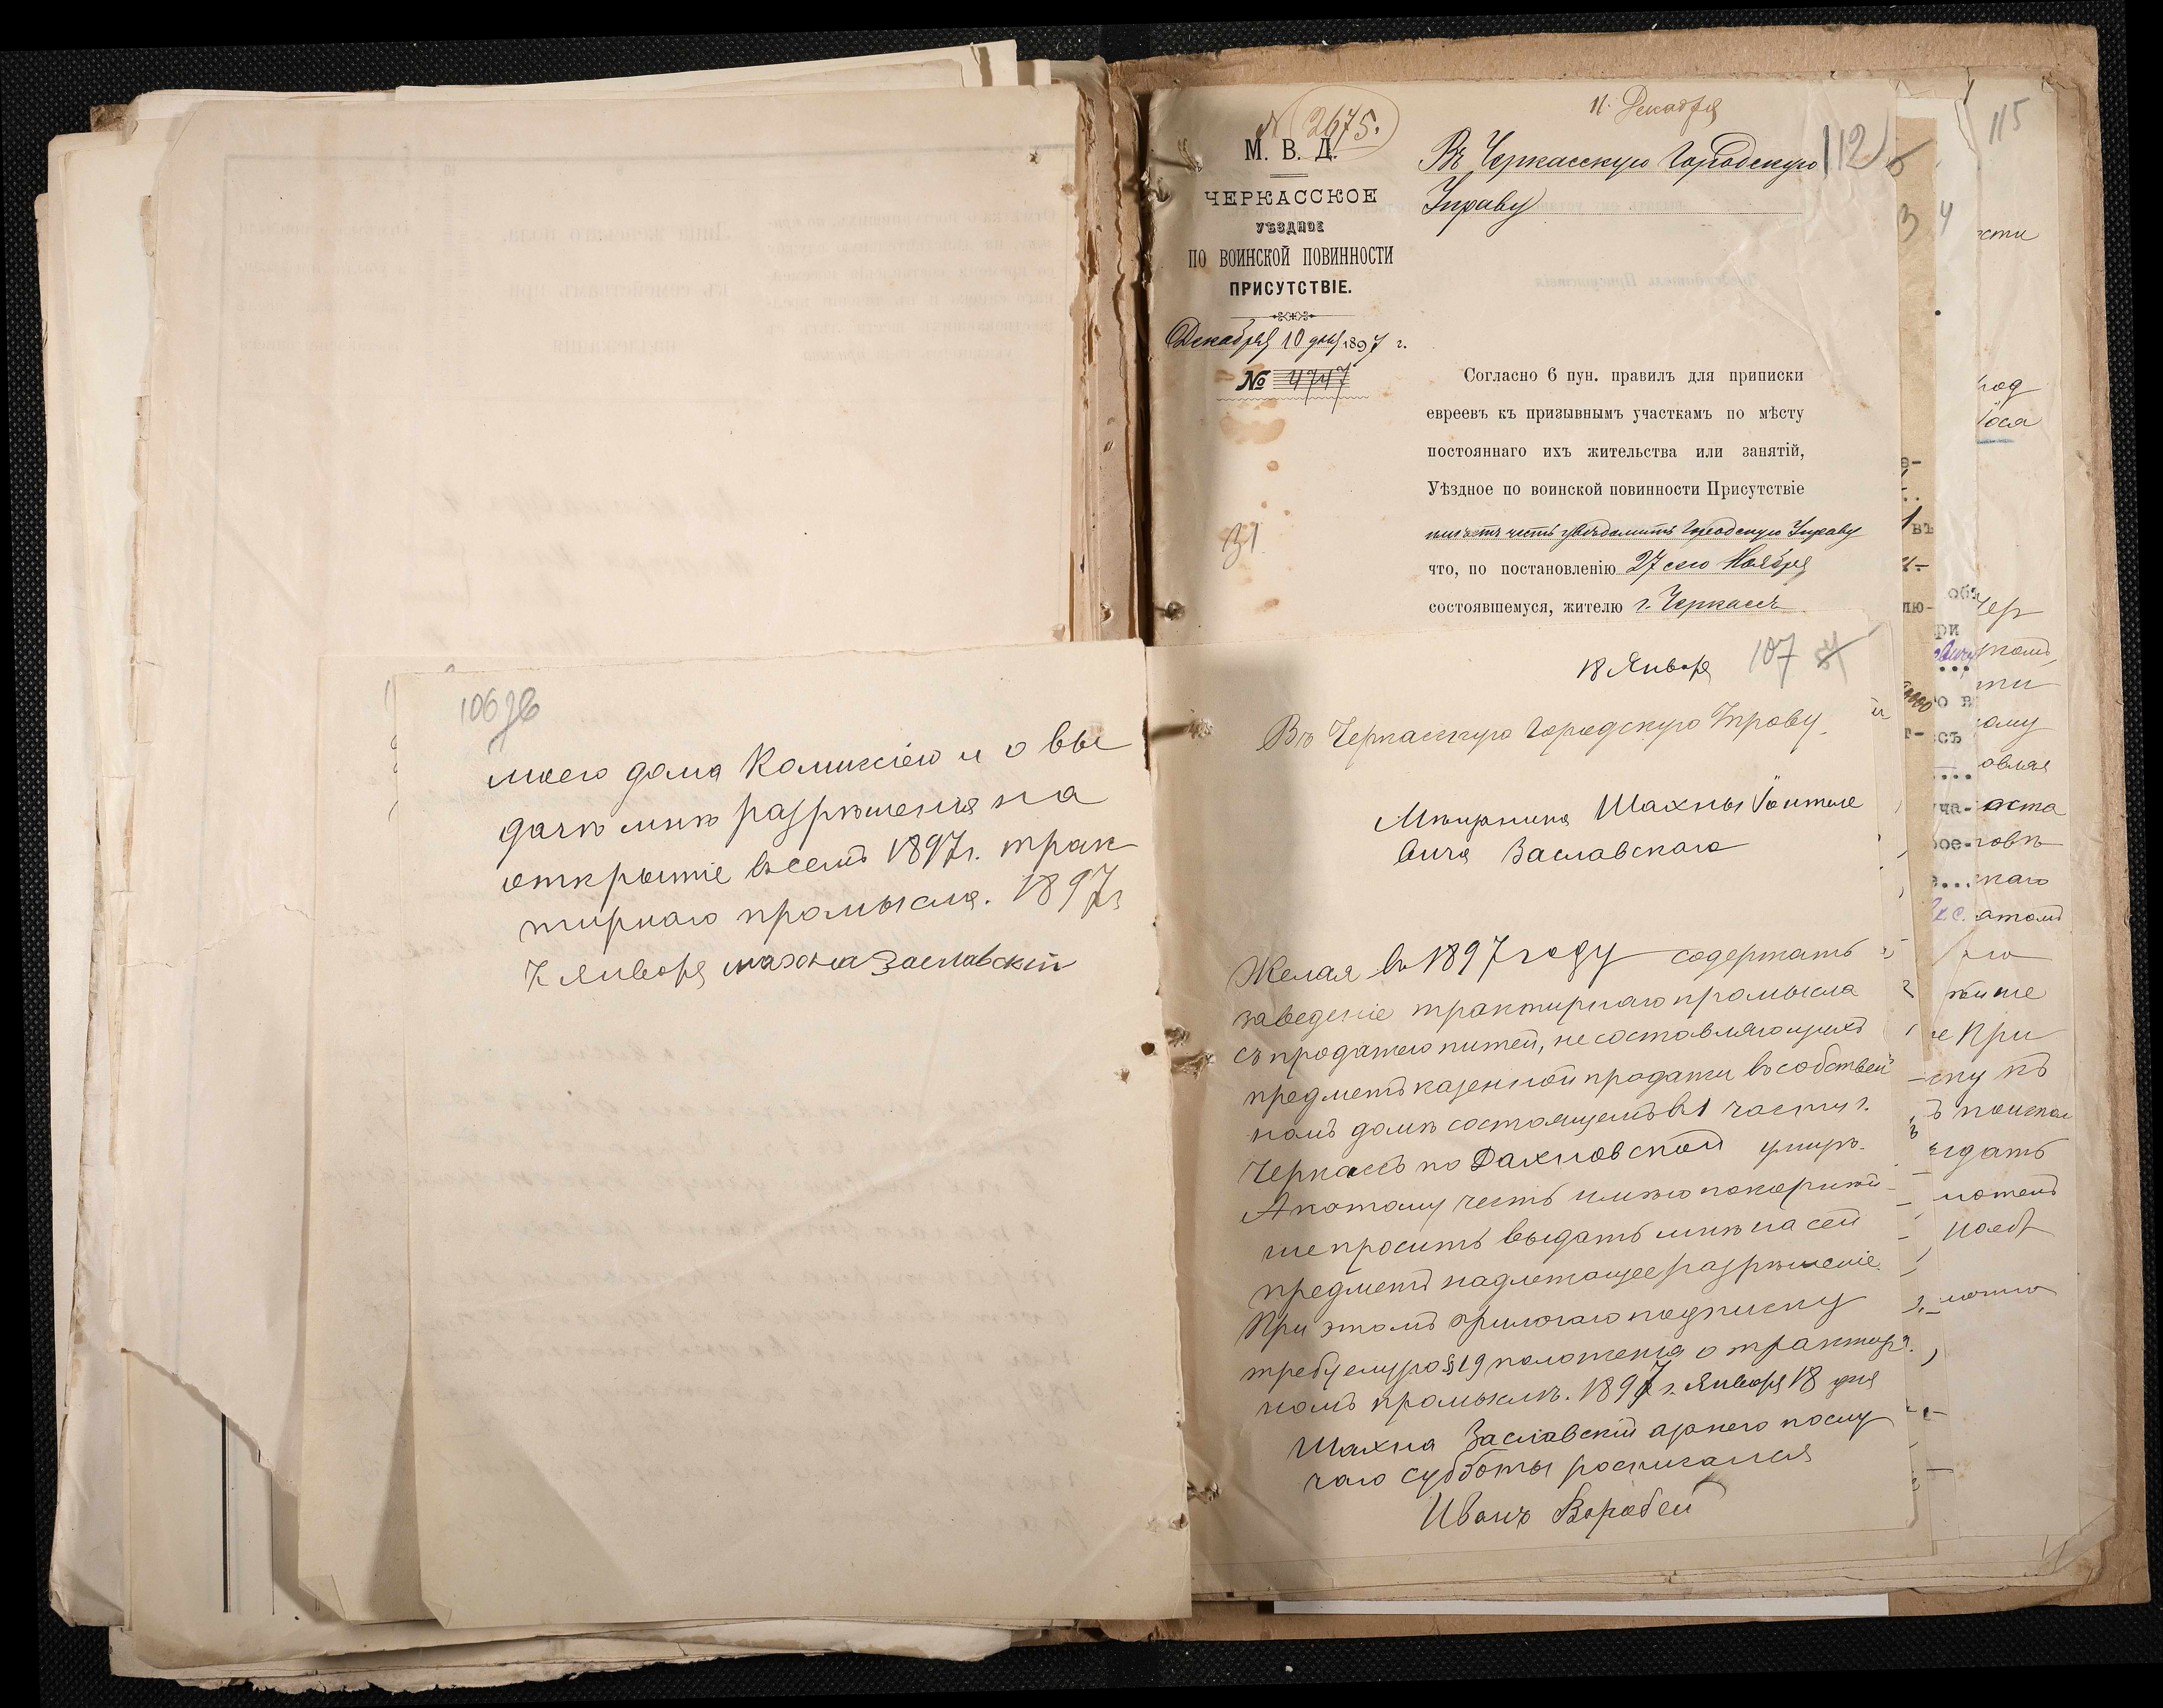 106 об
моего дома Комиссіею и о вы
дачѣ мнѣ разрѣшенія на
открытіе въ семъ 1897 г. трак
тирнаго промысла. 1897 г
7 января Шахна Заславскій
11 Декабря
№ 2675.
М. В. Д.
ЧЕРКАССКОЕ
УѢЗДНОЕ
ПО ВОИНСКОЙ ПОВИННОСТИ
ПРИСУТСТВІЕ.
Декабря 10 дня 1897 г.
№ 4747
31
Въ Черкасскую Городскую
Управу
112
Согласно 6 пун. правилъ для приписки
евреевъ къ призывнымъ участкамъ по мѣсту
постояннаго ихъ жительства или занятій,
Уѣздное по воинской повинности Присутствіе
имѣетъ честь увѣдомить Городскую Управу
что, по постановленію 27 сего Ноября
состоявшемуся, жителю г. Черкассъ
18 Января
107
Въ Черкасскую Городскую Управу
Мѣщанина Шахны
вича Заславскаго
Желая въ 1897 году содержать
заведеніе трактирнаго промысла
съ продажею питей, не составляющихъ
предметъ казенной продажи въ собствен
номъ домѣ состоящемъ въ 1 части г.
Черкассъ по Дахновской улицѣ.
А потому честь имѣю покорнѣй
ше просить выдать мнѣ на сей
предметъ надлежащее разрѣшеніе.
При этомъ прилагаю подписку
требуемую § 19 положенія о трактир
номъ промыслѣ. 1897 г. Января 18 дня
Шахна Заславскій а за него по слу
чаю субботы росписался
Иванъ Воробей
115